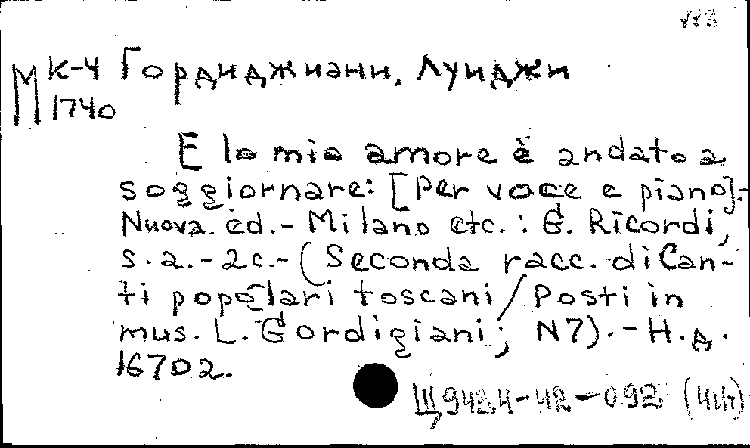 М К-4 Гордиджиани, Луиджи
1740
E lo mio amore è andato a
soggiornare: [Per voce e piano].-
Nuova ed.- Milano etc.: G. Ricordi,
s.a.-2c.- (Seconda racc. di Can-
ti popolari toscani / Posti in
mus. L. Gordigiani; N7).-Н.д.
16702.